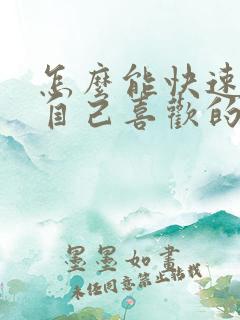 怎麼能快速
自己喜歡的
墨墨如畫
未經同意禁止轉載